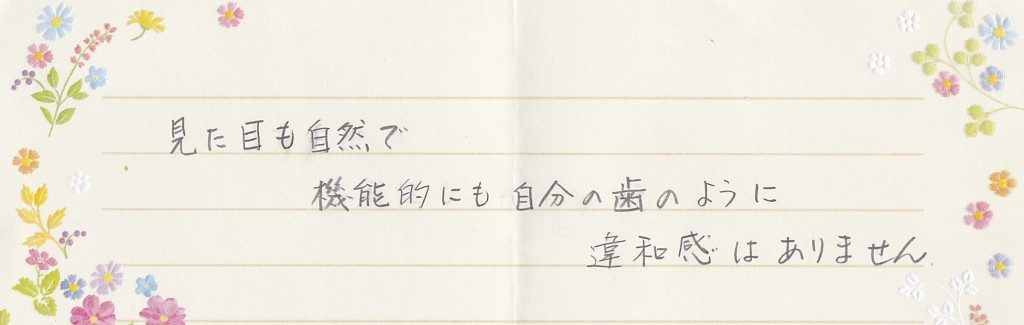 見た目も自然で
機能的にも自分の歯のように
違和感はありません.